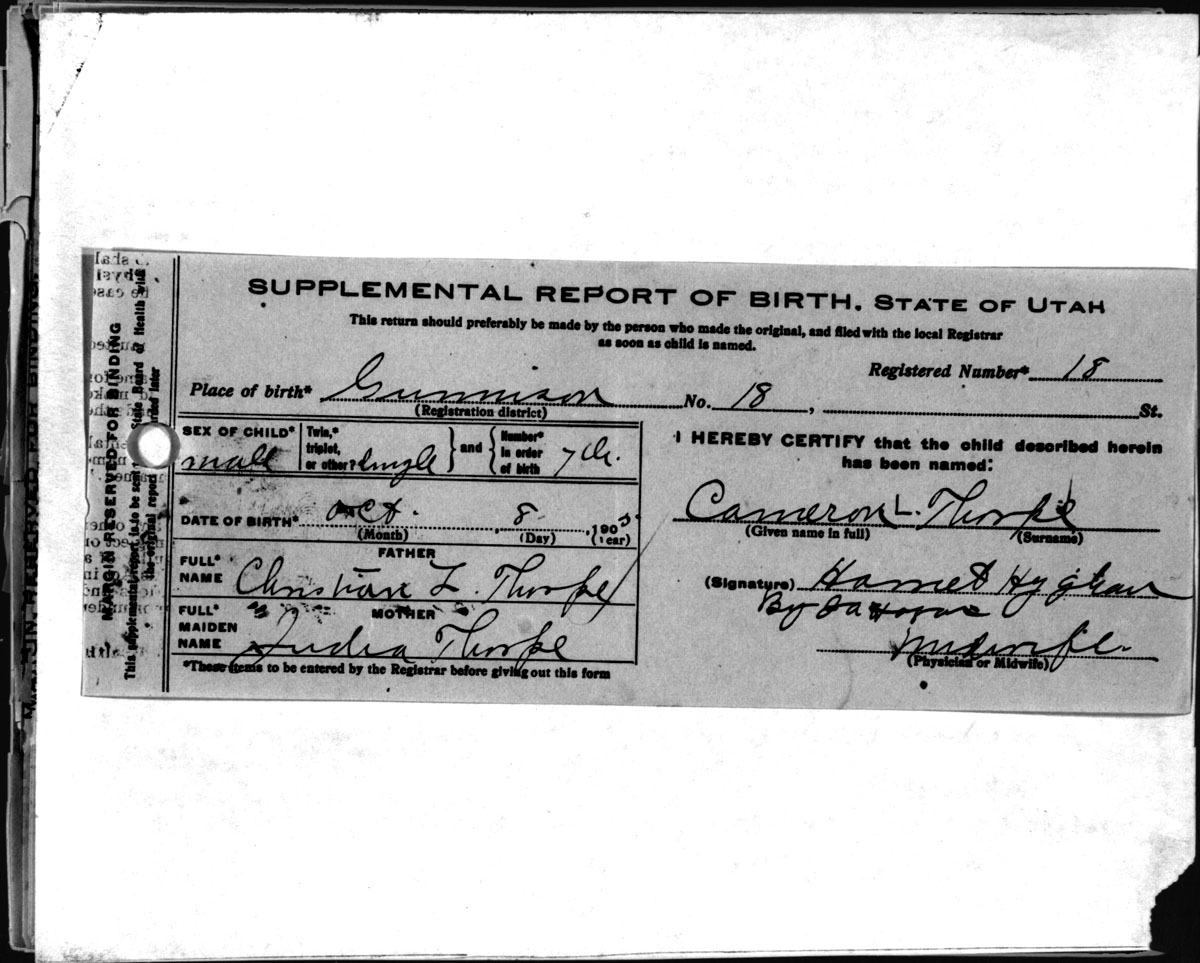 SUPPLEMENTAL REPORT OF BIRTH. STATE OF UTAH
This return should preferably be made by the person who made the original, and filed with the local Registrar
as soon as child is named.
Registered Number* 18
Place of birth* Gunnison No. 18, St.
(Registration district)
SEX OF CHILD* male Twin,* triplet, or other? single and Number* in order of birth 7th.
DATE OF BIRTH* Oct. 8, 190
(Month) (Day) (Year)
FATHER
FULL* NAME Christian L. Thorpe
MOTHER
FULL* MAIDEN NAME Thorpe
*These items to be entered by the Registrar before giving out this form
I HEREBY CERTIFY that the child described herein
has been named:
Cameron L. Thorpe
(Given name in full) (Surname)
(Signature)
By
Midwife.
(Physician or Midwife)
MARGIN RESERVED FOR BINDING
This supplemental report is to be sent State Board of Health with
the original report later